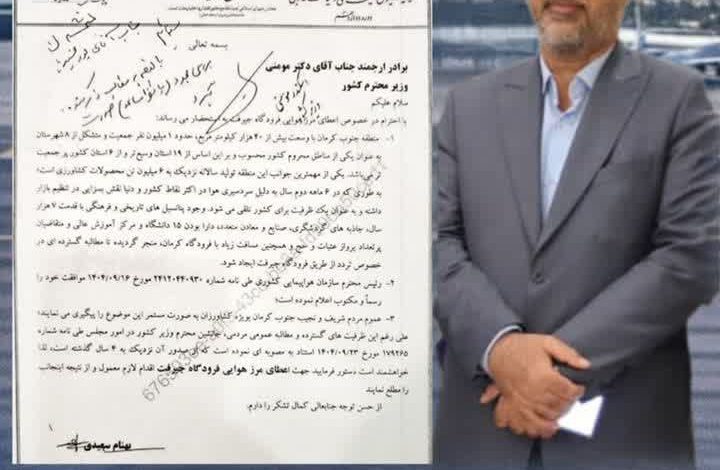 بسمه تعالی
برادر ارجمند جناب آقای دکتر مومنی
وزیر محترم کشور
سلام علیکم
با احترام در خصوص اعطای مرز هوایی فرودگاه جیرفت به استحضار می رساند:
۱- منطقه جنوب کرمان با وسعت بیش از ۴۰ هزار کیلومتر مربع، حدود ۱ میلیون نفر جمعیت و متشکل از ۸ شهرستان
به عنوان یکی از مناطق محروم کشور محسوب و بر این اساس از ۱۹ استان وسیع تر و از ۶ استان کشور پر جمعیت
تر می‌باشد. یکی از مهمترین جوانب این منطقه تولید سالانه نزدیک به ۶ میلیون تن محصولات کشاورزی است؛
به طوری که در ۶ ماهه دوم سال به دلیل سردسیری هوا در اکثر نقاط کشور و دنیا نقش بسزایی در تنظیم بازار
داشته و به عنوان یک ظرفیت برای کشور تلقی می شود. وجود پتانسیل های تاریخی و فرهنگی با قدمت ۷ هزار
سال، جاذبه های گردشگری، صنایع و معادن متعدد، دارا بودن ۱۵ دانشگاه و مرکز آموزش عالی و متقاضیان
پرتعداد پرواز عتبات و حج و همچنین مسافت زیاد با فرودگاه کرمان، منجر گردیده تا مطالبه گسترده ای در
خصوص تردد از طریق فرودگاه جیرفت ایجاد شود.
۲- رئیس محترم سازمان هواپیمایی کشوری طی نامه شماره ۲۴۱۲۰۴۴۹۳۰ مورخ ۱۴۰۴/۰۹/۱۶ موافقت خود را
رسماً و مکتوب اعلام نموده است؛
۳- عموم مردم شریف و نجیب جنوب کرمان بویژه کشاورزان به صورت مستمر این موضوع را پیگیری می نمایند؛
علی رغم این ظرفیت های گسترده و مطالبه عمومی مردمی، جانشین محترم وزیر کشور در امور مجلس طی نامه شماره
۱۷۹۲۶۵ مورخ ۱۴۰۴/۰۹/۲۳ استناد به مصوبه ای نموده است که از صدور آن نزدیک به ۴ سال گذشته است، لذا
خواهشمند است دستور فرمایید جهت اعطای مرز هوایی فرودگاه جیرفت اقدام لازم معمول و از نتیجه اینجانب
را مطلع نمایند
از حسن توجه جنابعالی کمال تشکر را دارم.
بهنام سعیدی
۱